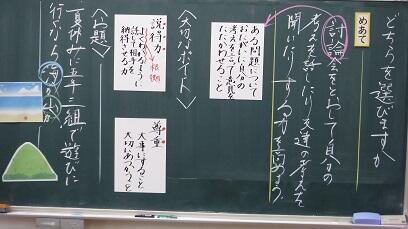 どちらを選びますか
めあて
討論会をとおして自分の
考えを話したり友達の考えを
聞いたりする力を高めよう。
ある問題について
おたがいに自分の
考えを言って意見を
たたかわせること
<大切なポイント>
説得力
根拠
話して相手を
納得させる力
尊重
大事にすること
大切にあつかうこと
<お題>
夏休みに五年三組で遊びに
行くなら海か山か